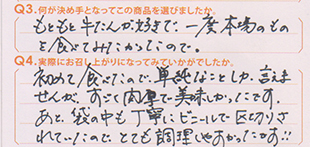 Q3.何が決め手となってこの商品を選びましたか。
もともと牛たんが好きで、一度本場のもの
を食べてみたかったので。
Q4.実際にお召し上がりになってみていかがでしたか。
初めて食べたので、単純なことしか言えま
せんが、すごく肉厚で美味しかったです。
あと、袋の中も丁寧にビニールで区切りさ
れていたので、とても調理しやすかったです!!